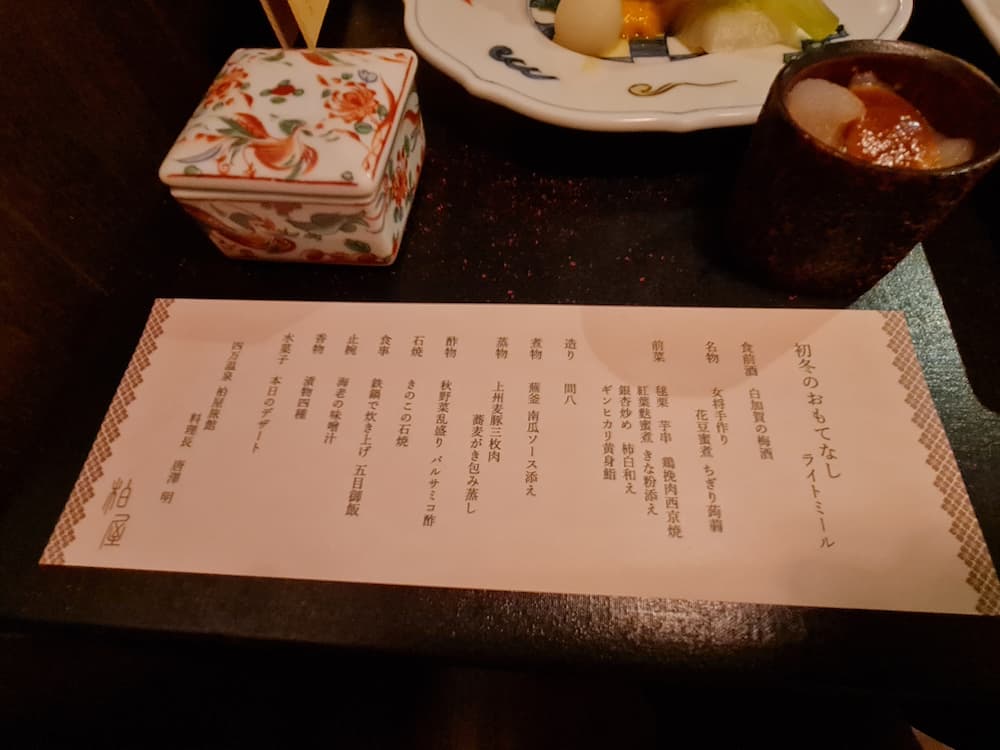 初冬のおもてなし
ライトミール
食前酒 白加賀の梅酒
名物 女将手作り ちぎり蒟蒻
花豆蜜煮
前菜 毬栗 芋串 鶏挽肉西京焼
紅葉麩蜜煮 きな粉添え
銀杏炒め 柿白和え
ギンヒカリ黄身鮨
造り 間八
煮物 蕪釜 南瓜ソース添え
蒸物 上州麦豚三枚肉
蕎麦がき包み蒸し
酢物 秋野菜乱盛り バルサミコ酢
石焼 きのこの石焼
食事 鉄鍋で炊き上げ 五目御飯
止椀 海老の味噌汁
香物 漬物四種
水菓子 本日のデザート
四万温泉 柏屋旅館
料理長 唐澤 明
柏屋